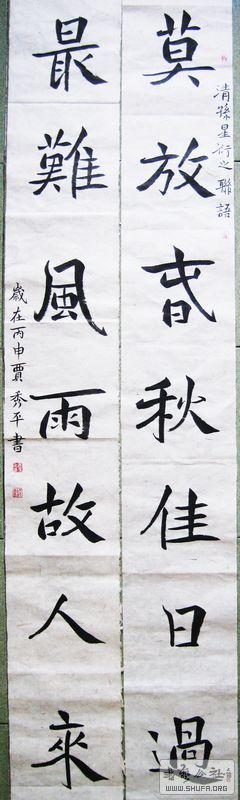 莫放春秋佳日過
清孫星衍之聯語
最難風雨故人來
歲在丙申賈秀平書
WWW.SHUFA.ORG